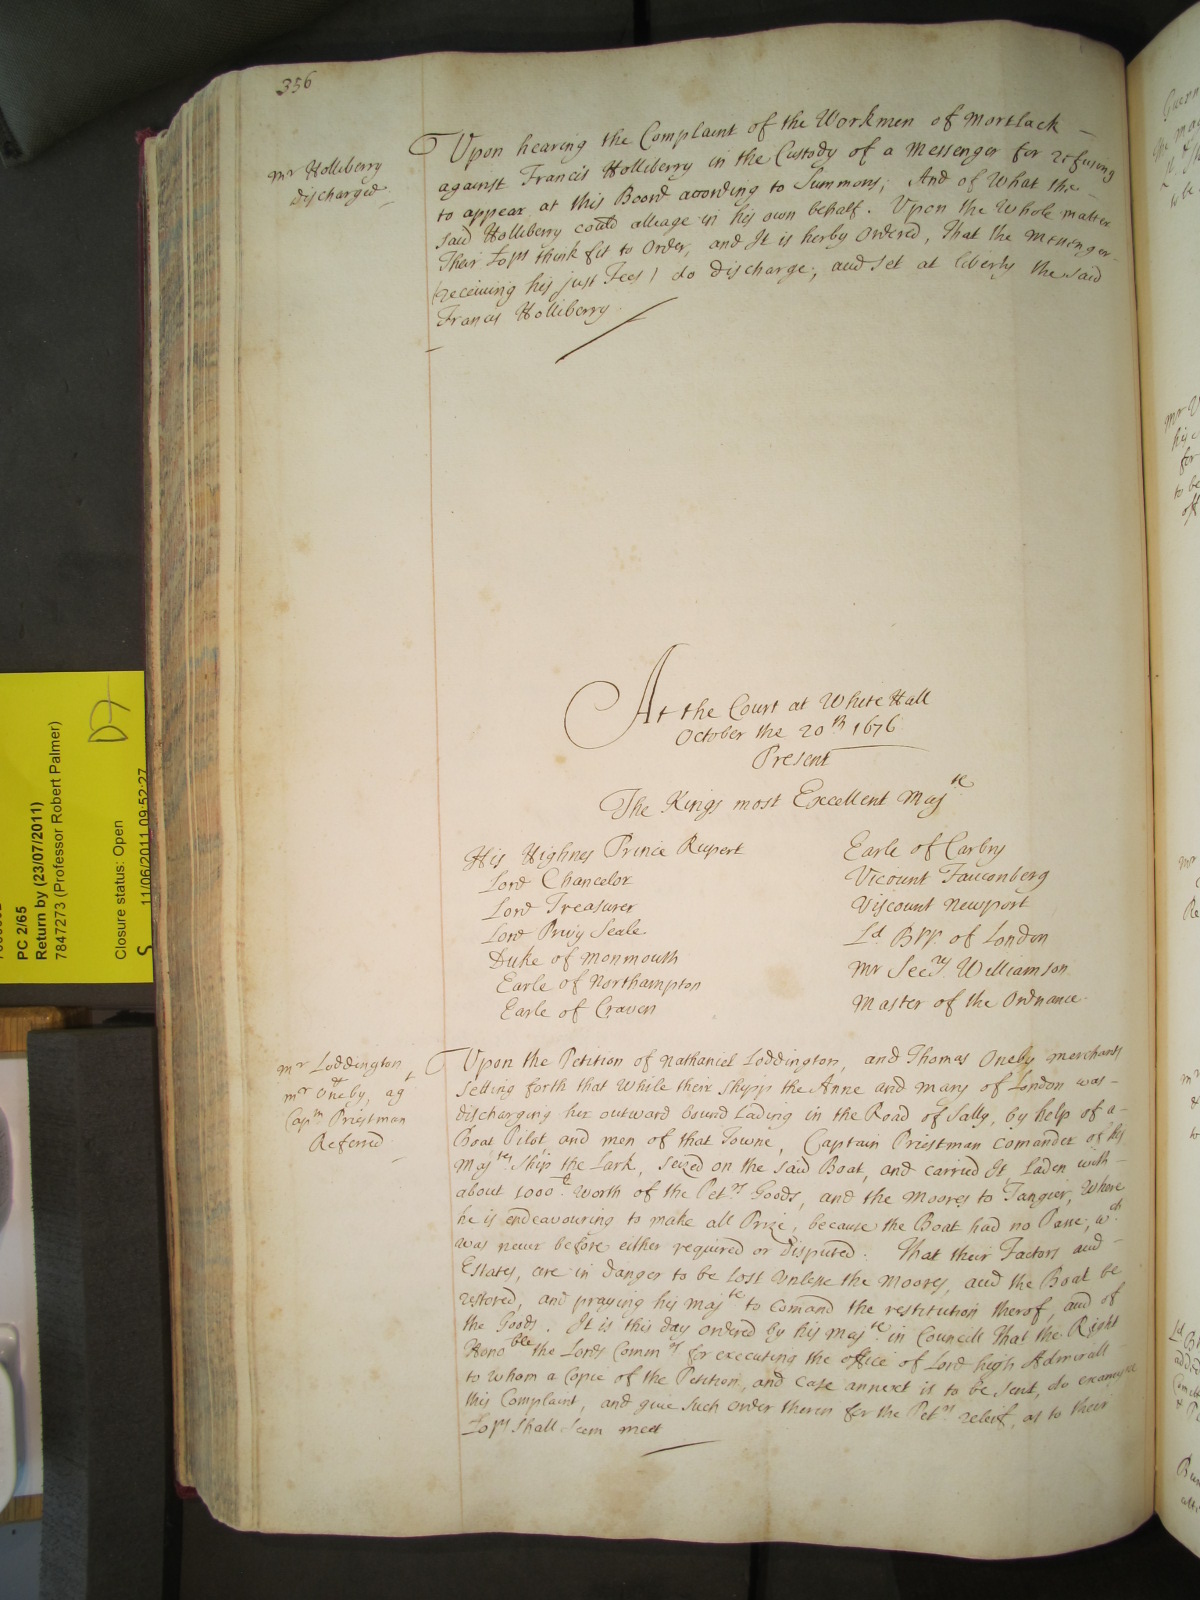 356
mr Holliberry
discharged
Upon hearing the Complaint of the Workmen of Mortlack
against Francis Holliberry in the Custody of a Messenger for refusing
to appear at this Board according to Summons; And of What the
said Holliberry could alleage in his own behalf. Upon the Whole matter
Their Lops think fit to Order, and It is herby Ordered, That the Messenger
(receiving his just Fees) do discharge, and set at liberty the said
Francis Holliberry
At the Court at White Hall
October the 20th 1676
Present
The Kings most Excellent Majte
His Highnes Prince Rupert
Lord Chancelor
Lord Treasurer
Lord Privy Seale
Duke of Monmouth
Earle of Northampton
Earle of Craven
Earle of Carbry
Vicount Fauconberg
Viscount Newport
Ld Bpp. of London
Mr Secry Williamson
Master of the Ordnance
mr Loddington
mr Oneby, agt
Captn Priestman
Referred
Upon the Petition of Nathaniel Loddington, and Thomas Oneby merchants
Setting forth that While their Shipp the Anne and Mary of London was
discharging her outward bound Lading in the Road of Sally, by help of a
Boat Pilot and men of that Towne, Captain Priestman Comander of his
Majtes Ship the Lark, seized on the said Boat, and carried It Laden with
about 1000£ Worth of the Petrs Goods, and the Moores to Tangier, Where
he is endeavouring to make all Prize, because the Boat had no Passe, wch
was never before either required or disputed. That their Factors and
Estates, are in danger to be lost Unlesse the Moores, and the Boat be
restored, and praying his Majte to Comand the restitution therof, and of
the Goods. It is this day ordered by his Majte in Councill That the Right
Honoble the Lords Commrs for executing the office of Lord high Admirall
to whom a Copie of the Petition, and Case annext is to be Sent, do examine
this Complaint, and give Such order therin for the Petrs releif, as to their
Lops Shall Seem meet
PC 2/65
Return by (23/07/2011)
7847273 (Professor Robert Palmer)
Closure status: Open
S
11/06/2011 09:52:27